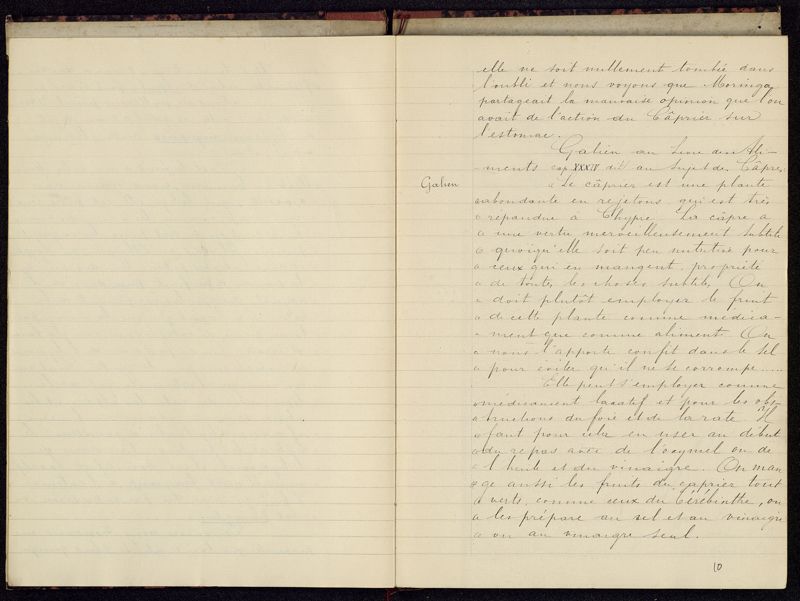 elle ne soit nullement tombée dans
l'oubli et nous voyons que Moringa
partageait la mauvaise opinion que l'on
avait de l'action du Câprier sur
l'estomac.
Galien au Livre des Ali-
-ments cap XXXIV dit au sujet des Câpres
Galien
« Le câprier est une plante
« abondante en rejetons qui est très
« répandue à Chypre. La câpre a
« une vertu merveilleusement subtile
« quoiqu'elle soit peu nutritive pour
« ceux qui en mangent, propriété
« de toutes les choses subtiles. On
« doit plutôt employer le fruit
« de cette plante comme médica-
« ment que comme aliment. On
« nous l'apporte confit dans le sel
« pour éviter qu'il ne se corrompe.....
Elle peut s'employer comme
« médicament laxatif et pour les obs-
« tructions du foie et de la rate. Il
« faut pour cela en user au début
« du repas avec de l'oxymel ou de
« l'huile et du vinaigre. On man
« ge aussi les fruits du câprier tout
« verts, comme ceux du Térébinthe, on
« les prépare au sel et au vinaigre
« ou au vinaigre seul.
10